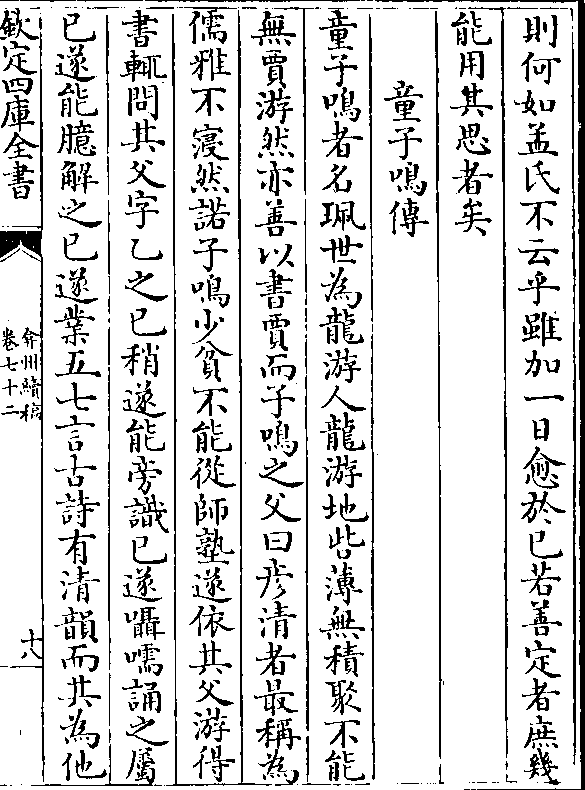 則何如孟氏不云乎雖加一日愈於已若善定者庶幾
能用其思者矣
童子鳴傳
童子鳴者名珮世為龍游人龍游地呰薄無積聚不能
無賈游然亦善以書賈而子鳴之父曰彦清者最稱為
儒雅不寖然諾子鳴少貧不能從師塾遂依其父游得
書輒問其父字乙之已稍遂能旁識已遂囁嚅誦之屬
已遂能臆解之已遂業五七言古詩有清韻而其為他
欽定四庫全書
弇州續稿
卷七十二
十八